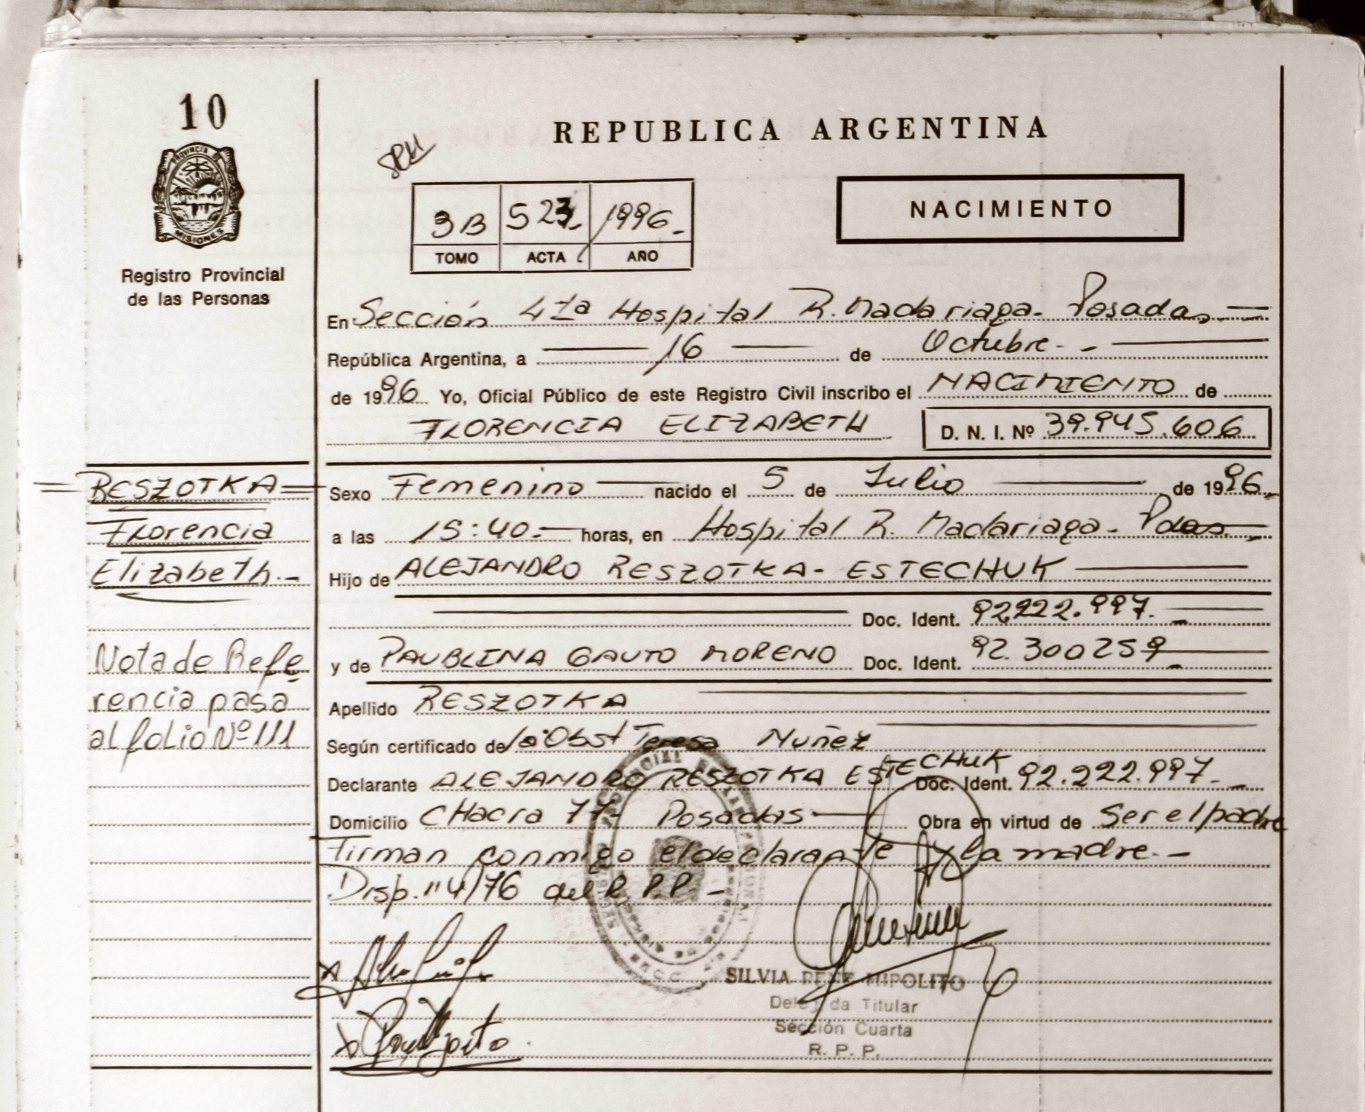 10
PROVINCIA DE
MISIONES
Registro Provincial
de las Personas
REPUBLICA ARGENTINA
3B 523 1996
TOMO ACTA AÑO
NACIMIENTO
En Sección 4ta Hospital R. Madariaga - Posadas
República Argentina, a 16 de Octubre
de 1996 Yo, Oficial Público de este Registro Civil inscribo el NACIMIENTO de
FLORENCIA ELIZABETH D. N. I. Nº 39.945.606
RESZOTKA
Florencia
Elizabeth.-
Sexo Femenino nacido el 5 de Julio de 1996.
a las 15:40.- horas, en Hospital R. Madariaga - Pdas.
Hijo de ALEJANDRO RESZOTKA - ESTECHUK
Doc. Ident. 92.222.997.
y de PAUBLINA GAUTO MORENO Doc. Ident. 92.300259
Nota de Refe
rencia pasa
al folio Nº 111
Apellido RESZOTKA
Según certificado de la Obst Teresa Nuñez
Declarante ALEJANDRO RESZOTKA ESTECHUK Doc. Ident. 92.222.997.
Domicilio CHacra 77 - Posadas Obra en virtud de Ser el padre
Firman conmigo el declarante y la madre.-
Disp. 114/76 del R.P.P.-
SILVIA RENE HIPOLITO
Delegada Titular
Sección Cuarta
R. P. P.